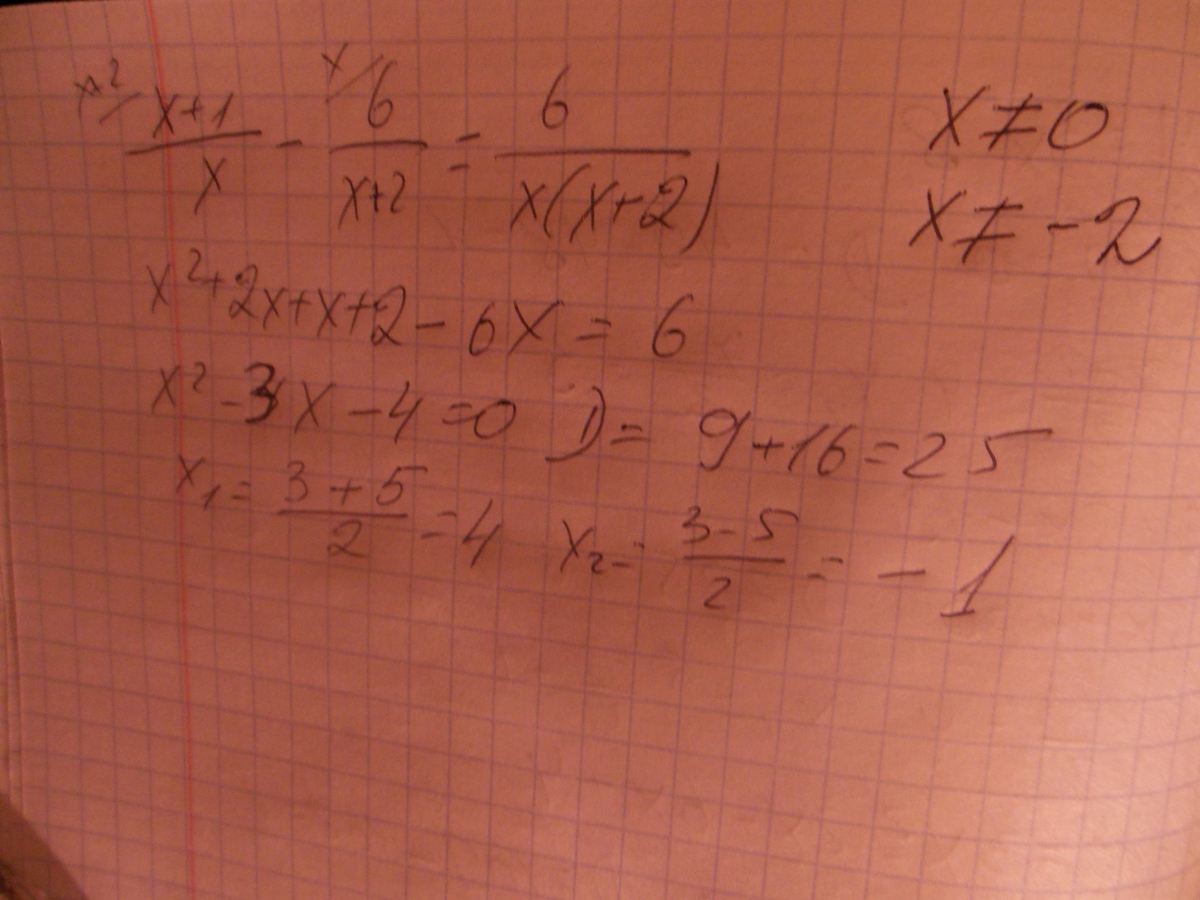 x+2/ (x+1)/x - x/ 6/(x+2) = 6/(x(x+2)) x≠0
x≠-2
x²+2x+x+2-6x=6
x²-3x-4=0 D=9+16=25
x₁=(3+5)/2=4 x₂=(3-5)/2=-1